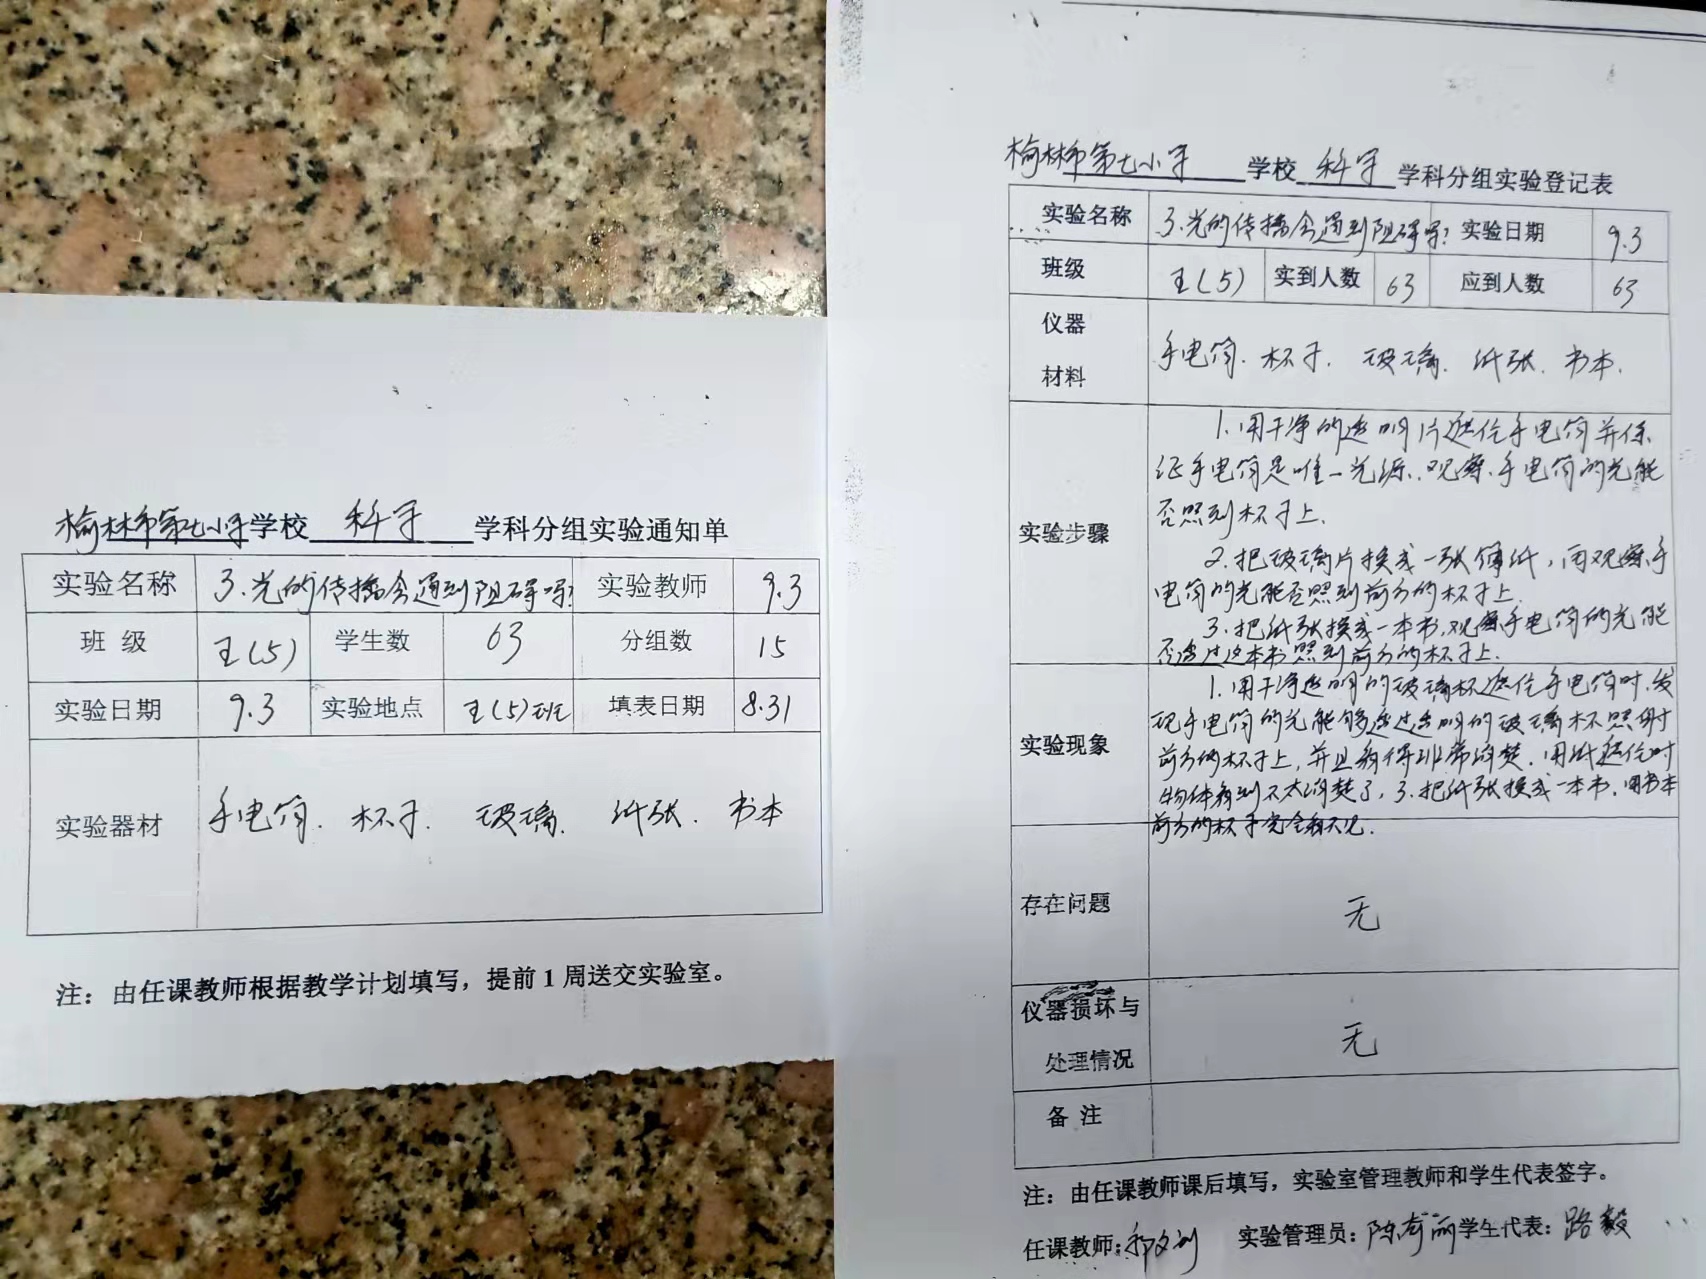 榆林市第七小学学校 科学 学科分组实验通知单
实验名称 3.光的传播会遇到阻碍吗? 实验教师 9.3
班 级 五(5) 学生数 63 分组数 15
实验日期 9.3 实验地点 五(5)班 填表日期 8.31
实验器材 手电筒. 杯子. 玻璃. 纸张. 书本
注：由任课教师根据教学计划填写，提前1周送交实验室。
榆林市第七小学 学校 科学 学科分组实验登记表
实验名称 3.光的传播会遇到阻碍吗? 实验日期 9.3
班级 五(5) 实到人数 63 应到人数 63
仪器
材料
手电筒. 杯子. 玻璃. 纸张. 书本.
实验步骤
1.用干净的透明片遮住手电筒并保
证手电筒是唯一光源.观察.手电筒的光能
否照到杯子上.
2.把玻璃片换成一张薄纸,再观察手
电筒的光能否照到前方的杯子上.
3.把纸张换成一本书,观察手电筒的光能
否透过这本书照到前方的杯子上.
实验现象
1.用干净透明的玻璃杯遮住手电筒时,发
现手电筒的光能够透过透明的玻璃杯照射
前方的杯子上,并且看得非常清楚.用纸遮住时
物体看到不太清楚了,3.把纸张换成一本书.用书本
前方的杯子完全看不见.
存在问题 无
仪器损坏与
处理情况
无
备 注
注：由任课教师课后填写，实验室管理教师和学生代表签字。
任课教师: 实验管理员: 学生代表: 路毅